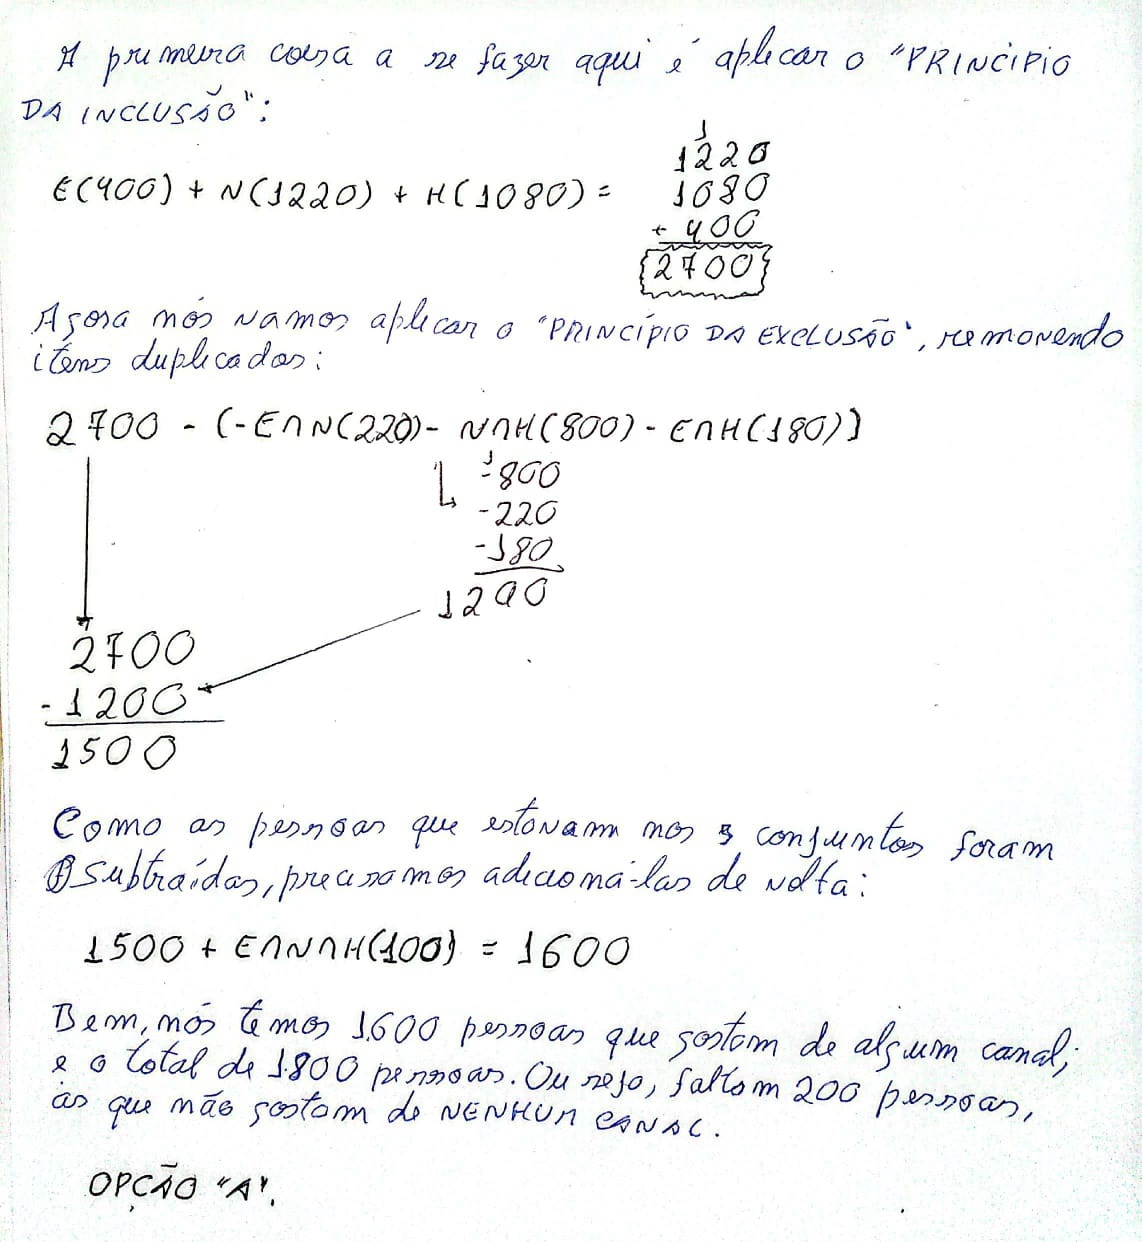 A primeira coisa a se fazer aqui é aplicar o "PRINCÍPIO
DA INCLUSÃO":
E(400) + N(1220) + H(1080) =
1
1220
1080
+ 400
2700
Agora nós vamos aplicar o "PRINCÍPIO DA EXCLUSÃO", removendo
itens duplicados:
2700 - (-E∩N(220) - N∩H(800) - E∩H(180))
1
-800
-220
-180
1200
2700
-1200
1500
Como as pessoas que estavam nos 3 conjuntos foram
subtraídas, precisamos adicioná-las de volta:
1500 + E∩N∩H(100) = 1600
Bem, nós temos 1.600 pessoas que gostam de algum canal;
e o total de 1.800 pessoas. Ou seja, faltam 200 pessoas,
as que não gostam de NENHUM CANAL.
OPÇÃO "A".